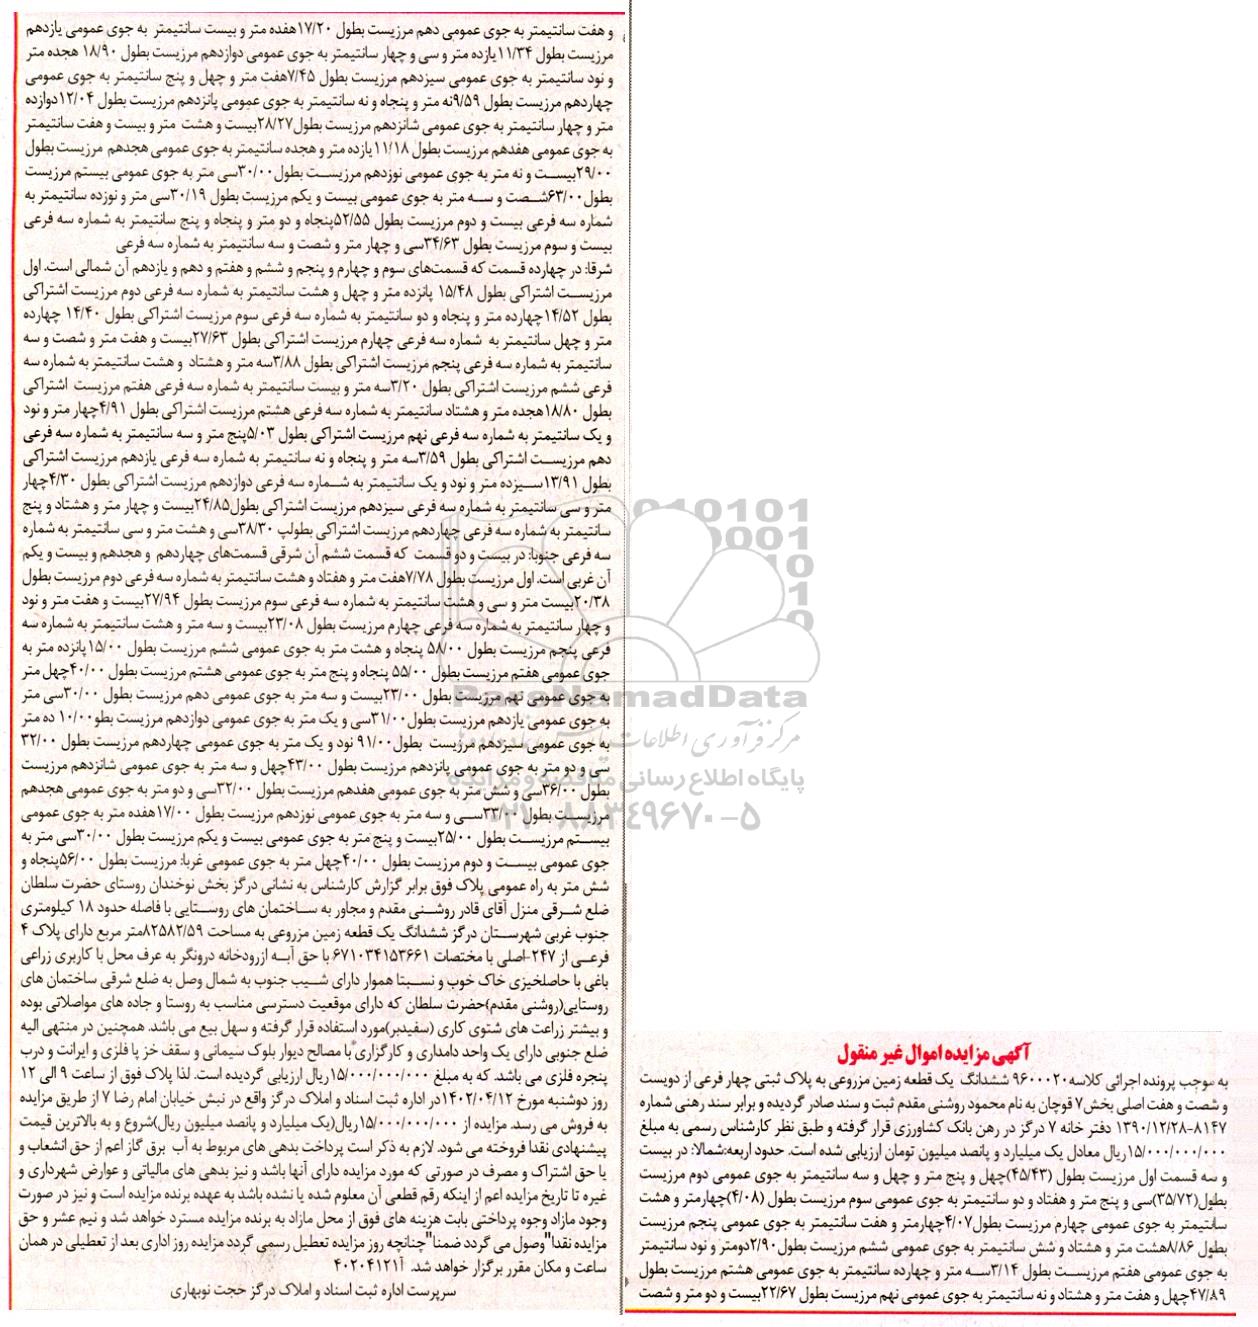 آگهی مزایده اموال غیر منقول
به موجب پرونده اجرائی کلاسه ۹۶۰۰۰۲۰ ششدانگ یک قطعه زمین مزروعی به پلاک ثبتی چهار فرعی از دویست
و شصت و هفت اصلی بخش ۷ قوچان به نام محمود روشنی مقدم ثبت و سند صادر گردیده و برابر سند رهنی شماره
۸۱۴۷-۱۳۹۰/۱۲/۲۸ دفتر خانه ۷ درگز در رهن بانک کشاورزی قرار گرفته و طبق نظر کارشناس رسمی به مبلغ
۱۵/۰۰۰/۰۰۰/۰۰۰ریال معادل یک میلیارد و پانصد میلیون تومان ارزیابی شده است. حدود اربعه:شمالا: در بیست
و سه قسمت اول مرزیست بطول (۴۵/۴۳)چهل و پنج متر و چهل و سه سانتیمتر به جوی عمومی دوم مرزیست
بطول(۳۵/۷۲)سی و پنج متر و هفتاد و دو سانتیمتر به جوی عمومی سوم مرزیست بطول (۴/۰۸)چهارمتر و هشت
سانتیمتر به جوی عمومی چهارم مرزیست بطول۴/۰۷چهارمتر و هفت سانتیمتر به جوی عمومی پنجم مرزیست
بطول ۸/۸۶هشت متر و هشتاد و شش سانتیمتر به جوی عمومی ششم مرزیست بطول۲/۹۰دومتر و نود سانتیمتر
به جوی عمومی هفتم مرزیست بطول ۳/۱۴سه متر و چهارده سانتیمتر به جوی عمومی هشتم مرزیست بطول
۴۷/۸۹چهل و هفت متر و هشتاد و نه سانتیمتر به جوی عمومی نهم مرزیست بطول ۲۲/۶۷بیست و دو متر و شصت
و هفت سانتیمتر به جوی عمومی دهم مرزیست بطول ۱۷/۲۰هفده متر و بیست سانتیمتر به جوی عمومی یازدهم
مرزیست بطول ۱۱/۳۴یازده متر و سی و چهار سانتیمتر به جوی عمومی دوازدهم مرزیست بطول ۱۸/۹۰ هجده متر
و نود سانتیمتر به جوی عمومی سیزدهم مرزیست بطول ۷/۴۵هفت متر و چهل و پنج سانتیمتر به جوی عمومی
چهاردهم مرزیست بطول ۹/۵۹نه متر و پنجاه و نه سانتیمتر به جوی عمومی پانزدهم مرزیست بطول ۱۲/۰۴دوازده
متر و چهار سانتیمتر به جوی عمومی شانزدهم مرزیست بطول۲۸/۲۷بیست و هشت متر و بیست و هفت سانتیمتر
به جوی عمومی هفدهم مرزیست بطول ۱۱/۱۸یازده متر و هجده سانتیمتر به جوی عمومی هجدهم مرزیست بطول
۲۹/۰۰بیست و نه متر به جوی عمومی نوزدهم مرزیست بطول۳۰/۰۰سی متر به جوی عمومی بیستم مرزیست
بطول۶۳/۰۰شصت و سه متر به جوی عمومی بیست و یکم مرزیست بطول ۳۰/۱۹سی متر و نوزده سانتیمتر به
شماره سه فرعی بیست و دوم مرزیست بطول ۵۲/۵۵پنجاه و دو متر و پنجاه و پنج سانتیمتر به شماره سه فرعی
بیست و سوم مرزیست بطول ۳۴/۶۳سی و چهار متر و شصت و سه سانتیمتر به شماره سه فرعی
شرقا: در چهارده قسمت که قسمت‌های سوم و چهارم و پنجم و ششم و هفتم و دهم و یازدهم آن شمالی است. اول
مرزیست اشتراکی بطول ۱۵/۴۸ پانزده متر و چهل و هشت سانتیمتر به شماره سه فرعی دوم مرزیست اشتراکی
بطول ۱۴/۵۲چهارده متر و پنجاه و دو سانتیمتر به شماره سه فرعی سوم مرزیست اشتراکی بطول ۱۴/۴۰ چهارده
متر و چهل سانتیمتر به شماره سه فرعی چهارم مرزیست اشتراکی بطول ۲۷/۶۳بیست و هفت متر و شصت و سه
سانتیمتر به شماره سه فرعی پنجم مرزیست اشتراکی بطول ۳/۸۸سه متر و هشتاد و هشت سانتیمتر به شماره سه
فرعی ششم مرزیست اشتراکی بطول ۳/۲۰سه متر و بیست سانتیمتر به شماره سه فرعی هفتم مرزیست اشتراکی
بطول ۱۸/۸۰هجده متر و هشتاد سانتیمتر به شماره سه فرعی هشتم مرزیست اشتراکی بطول ۴/۹۱چهار متر و نود
و یک سانتیمتر به شماره سه فرعی نهم مرزیست اشتراکی بطول ۵/۰۳پنج متر و سه سانتیمتر به شماره سه فرعی
دهم مرزیست اشتراکی بطول ۳/۵۹سه متر و پنجاه و نه سانتیمتر به شماره سه فرعی یازدهم مرزیست اشتراکی
بطول ۱۳/۹۱سیزده متر و نود و یک سانتیمتر به شماره سه فرعی دوازدهم مرزیست اشتراکی بطول ۴/۳۰چهار
متر و سی سانتیمتر به شماره سه فرعی سیزدهم مرزیست اشتراکی بطول۲۴/۸۵بیست و چهار متر و هشتاد و پنج
سانتیمتر به شماره سه فرعی چهاردهم مرزیست اشتراکی بطولپ ۳۸/۳۰سی و هشت متر و سی سانتیمتر به شماره
سه فرعی جنوبا: در بیست و دو قسمت که قسمت ششم آن شرقی قسمت‌های چهاردهم و هجدهم و بیست و یکم
آن غربی است. اول مرزیست بطول ۷/۷۸هفت متر و هفتاد و هشت سانتیمتر به شماره سه فرعی دوم مرزیست بطول
۲۰/۳۸بیست متر و سی و هشت سانتیمتر به شماره سه فرعی سوم مرزیست بطول ۲۷/۹۴بیست و هفت متر و نود
و چهار سانتیمتر به شماره سه فرعی چهارم مرزیست بطول ۲۳/۰۸بیست و سه متر و هشت سانتیمتر به شماره سه
فرعی پنجم مرزیست بطول ۵۸/۰۰ پنجاه و هشت متر به جوی عمومی ششم مرزیست بطول ۱۵/۰۰پانزده متر به
جوی عمومی هفتم مرزیست بطول ۵۵/۰۰ پنجاه و پنج متر به جوی عمومی هشتم مرزیست بطول ۴۰/۰۰چهل متر
به جوی عمومی نهم مرزیست بطول ۲۳/۰۰بیست و سه متر به جوی عمومی دهم مرزیست بطول ۳۰/۰۰سی متر
به جوی عمومی یازدهم مرزیست بطول۳۱/۰۰سی و یک متر به جوی عمومی دوازدهم مرزیست بطو۱۰/۰۰ ده متر
به جوی عمومی سیزدهم مرزیست بطول۹۱/۰۰ نود و یک متر به جوی عمومی چهاردهم مرزیست بطول ۳۲/۰۰
سی و دو متر به جوی عمومی پانزدهم مرزیست بطول ۴۳/۰۰چهل و سه متر به جوی عمومی شانزدهم مرزیست
بطول ۳۶/۰۰سی و شش متر به جوی عمومی هفدهم مرزیست بطول ۳۲/۰۰سی و دو متر به جوی عمومی هجدهم
مرزیست بطول ۳۳/۰۰سی و سه متر به جوی عمومی نوزدهم مرزیست بطول ۱۷/۰۰هفده متر به جوی عمومی
بیستم مرزیست بطول ۲۵/۰۰بیست و پنج متر به جوی عمومی بیست و یکم مرزیست بطول ۳۰/۰۰سی متر به
جوی عمومی بیست و دوم مرزیست بطول ۴۰/۰۰چهل متر به جوی عمومی غربا: مرزیست بطول ۵۶/۰۰پنجاه و
شش متر به راه عمومی پلاک فوق برابر گزارش کارشناس به نشانی درگز بخش نوخندان روستای حضرت سلطان
ضلع شرقی منزل آقای قادر روشنی مقدم و مجاور به ساختمان های روستایی با فاصله حدود ۱۸ کیلومتری
جنوب غربی شهرستان درگز ششدانگ یک قطعه زمین مزروعی به مساحت ۸۲۵۸۲/۵۹متر مربع دارای پلاک ۴
فرعی از ۲۴۷-اصلی با مختصات ۶۷۱۰۳۴۱۵۳۶۶۱ با حق آبه ازرودخانه درونگر به عرف محل با کاربری زراعی
باغی با حاصلخیزی خاک خوب و نسبتا هموار دارای شیب جنوب به شمال وصل به ضلع شرقی ساختمان های
روستایی(روشنی مقدم)حضرت سلطان که دارای موقعیت دسترسی مناسب به روستا و جاده های مواصلاتی بوده
و بیشتر زراعت های شتوی کاری (سفیدبر)مورد استفاده قرار گرفته و سهل بیع می باشد. همچنین در منتهی الیه
ضلع جنوبی دارای یک واحد دامداری و کارگزاری با مصالح دیوار بلوک سیمانی و سقف خز پا فلزی و ایرانت و درب
پنجره فلزی می باشد. که به مبلغ ۱۵/۰۰۰/۰۰۰/۰۰۰ریال ارزیابی گردیده است. لذا پلاک فوق از ساعت ۹ الی ۱۲
روز دوشنبه مورخ ۱۴۰۲/۰۴/۱۲در اداره ثبت اسناد و املاک درگز واقع در نبش خیابان امام رضا ۷ از طریق مزایده
به فروش می رسد. مزایده از ۱۵/۰۰۰/۰۰۰/۰۰۰ریال(یک میلیارد و پانصد میلیون ریال)شروع و به بالاترین قیمت
پیشنهادی نقدا فروخته می شود. لازم به ذکر است پرداخت بدهی های مربوط به آب برق گاز اعم از حق انشعاب و
یا حق اشتراک و مصرف در صورتی که مورد مزایده دارای آنها باشد و نیز بدهی های مالیاتی و عوارض شهرداری و
غیره تا تاریخ مزایده اعم از اینکه رقم قطعی آن معلوم شده یا نشده باشد به عهده برنده مزایده است و نیز در صورت
وجود مازاد وجوه پرداختی بابت هزینه های فوق از محل مازاد به برنده مزایده مسترد خواهد شد و نیم عشر و حق
مزایده نقدا"وصول می گردد ضمنا"چنانچه روز مزایده تعطیل رسمی گردد مزایده روز اداری بعد از تعطیلی در همان
ساعت و مکان مقرر برگزار خواهد شد. آ۴۰۲۰۴۱۲۱
سرپرست اداره ثبت اسناد و املاک درگز حجت نوبهاری
ParsNamadData
پایگاه اطلاع رسانی مناقصه و مزایده
۰۲۱-۸۸۳۴۹۶۷۰-۵